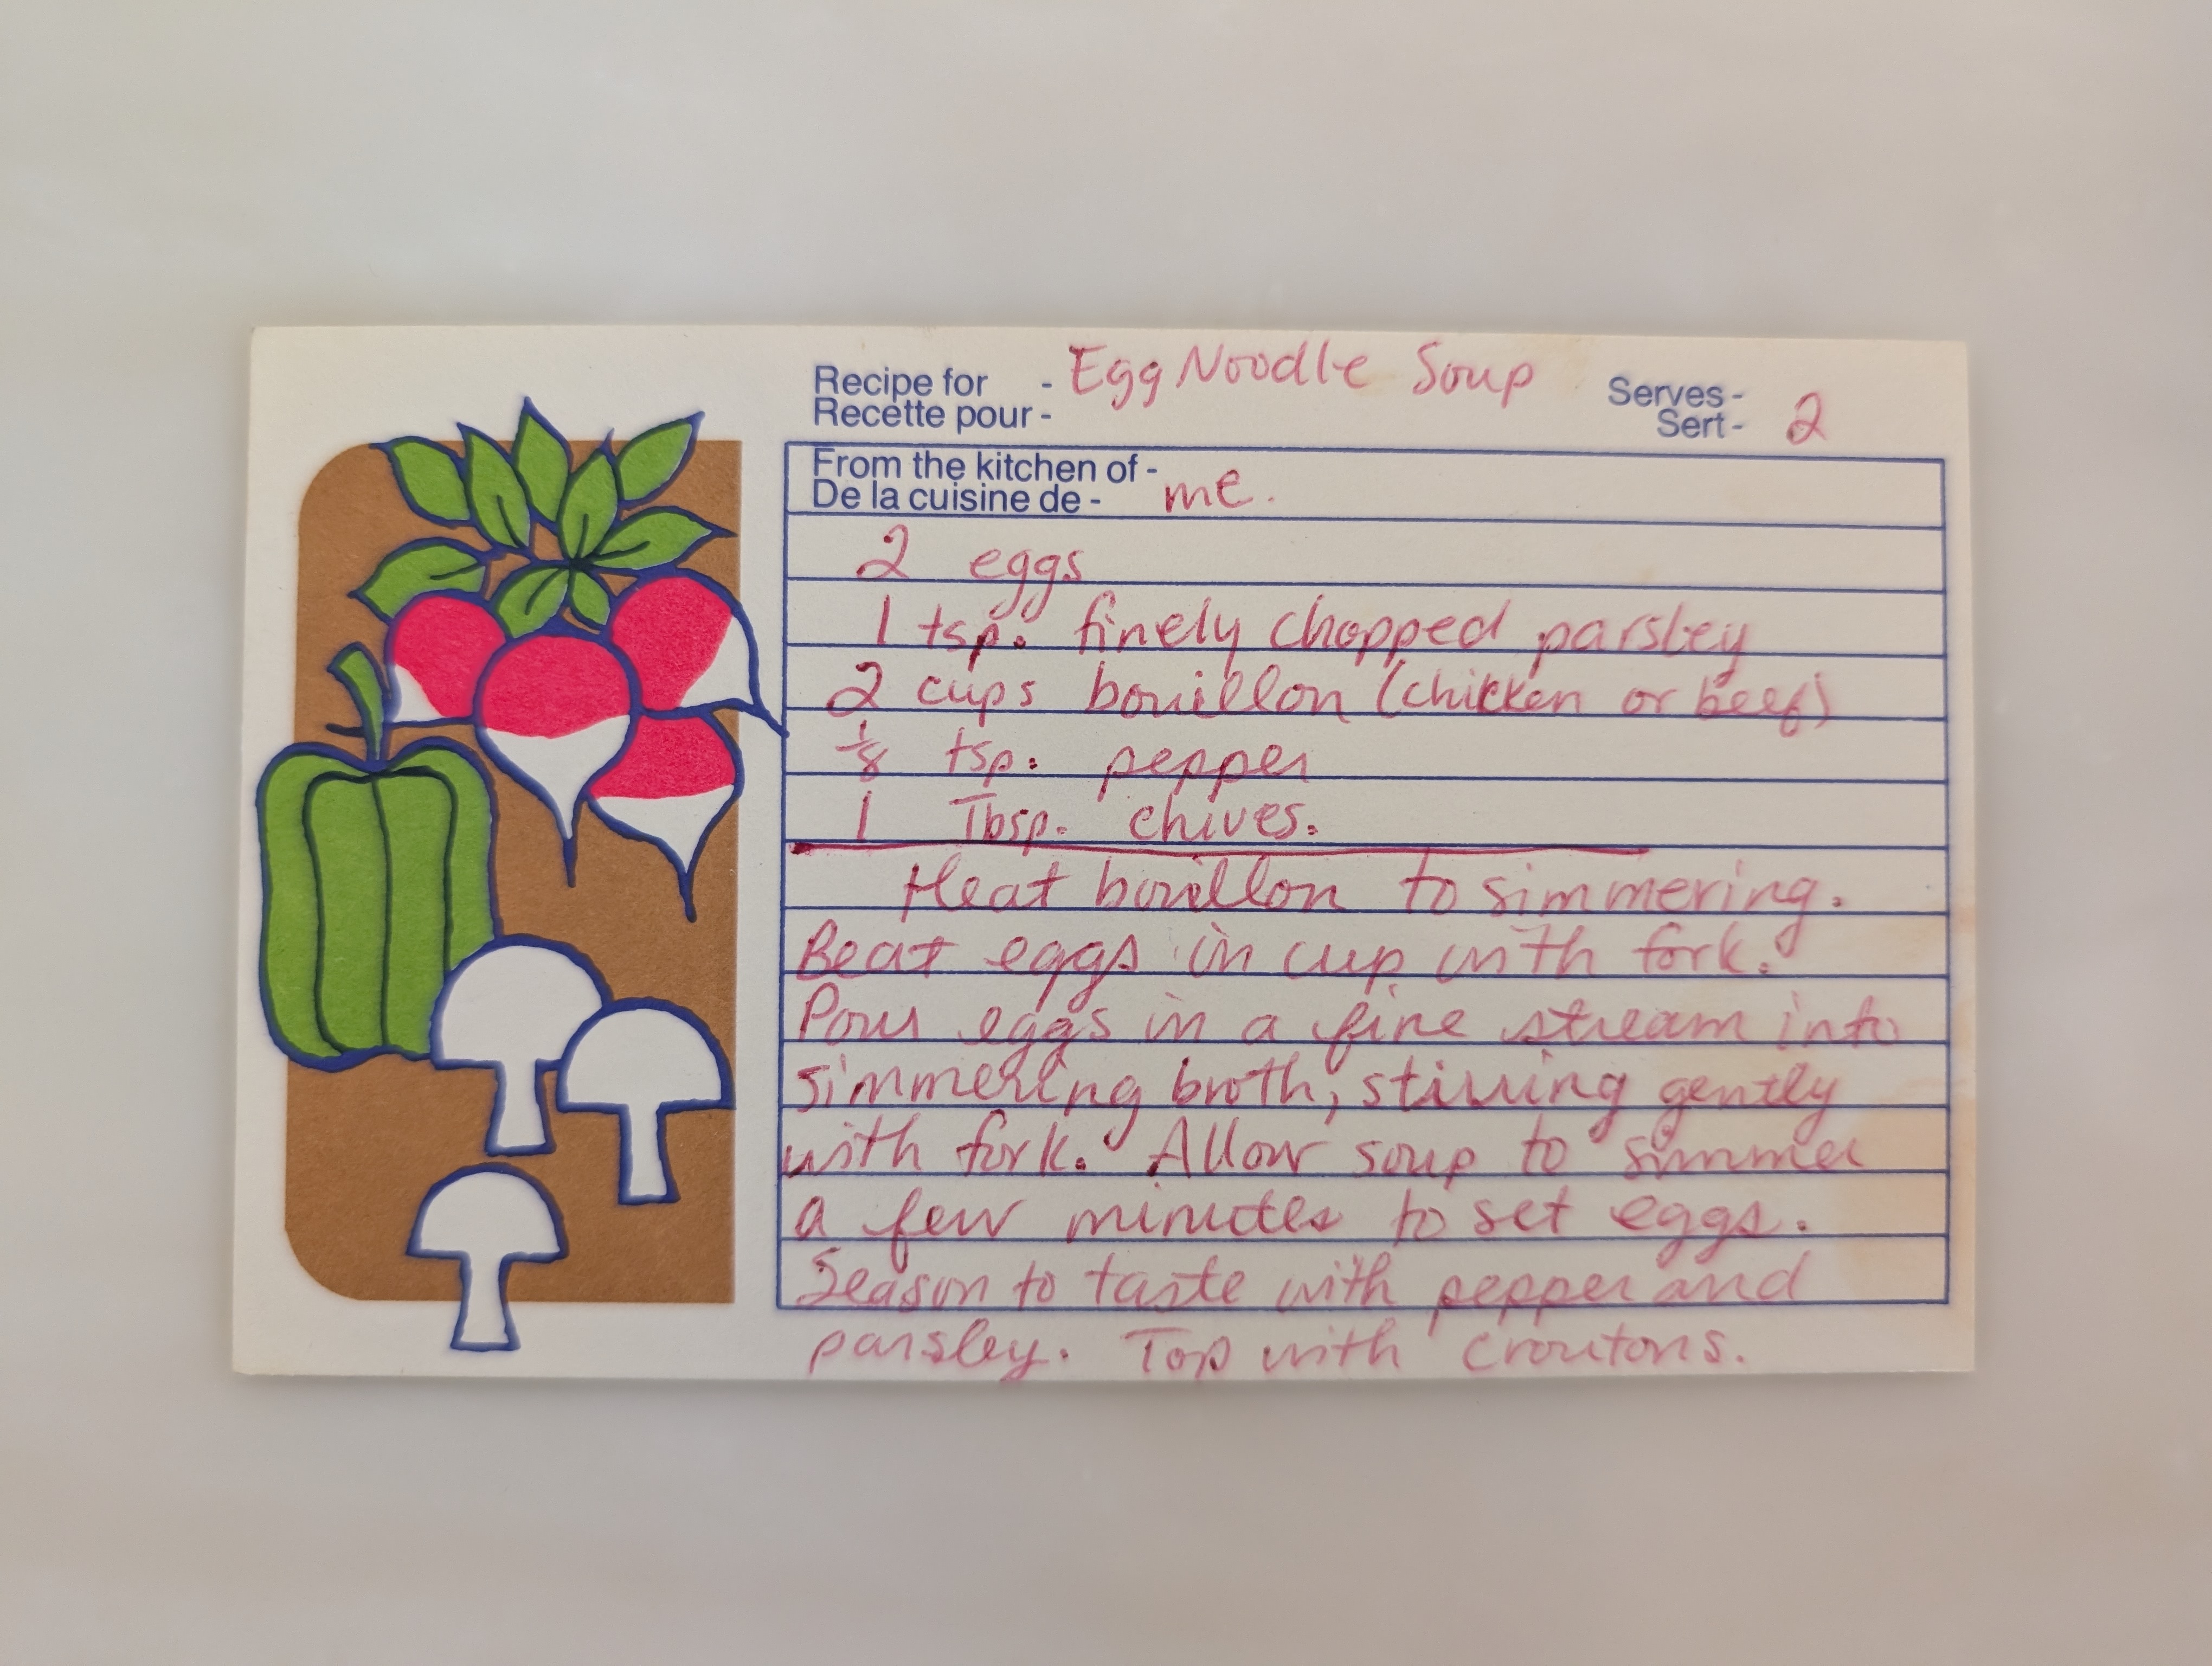 Recipe for - Egg Noodle Soup Serves -
Recette pour - Sert - 2
From the kitchen of -
De la cuisine de - me.
2 eggs
1 tsp. finely chopped parsley
2 cups bouillon (chicken or beef)
1/8 tsp. pepper
1 Tbsp. chives.
Heat bouillon to simmering.
Beat eggs in cup with fork.
Pour eggs in a fine stream into
simmering broth, stirring gently
with fork. Allow soup to simmer
a few minutes to set eggs.
Season to taste with pepper and
parsley. Top with croutons.